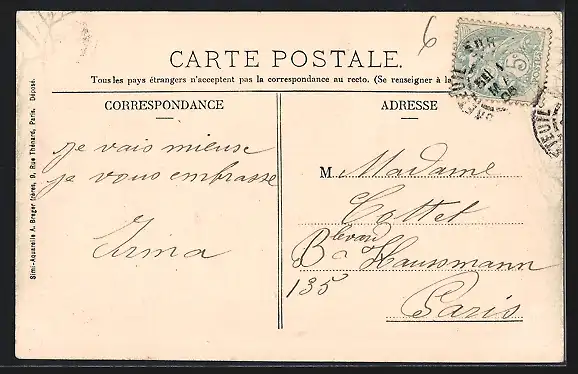 6
CARTE POSTALE.
Tous les pays étrangers n'acceptent pas la correspondance au recto. (Se renseigner à la
CORRESPONDANCE
je vais mieuse
je vous embrasse
Irma
ADRESSE
M. Madame
Cottet
Blevard Haussmann
135
Paris
Simi-Aquarelle A. Breger frères, 9, Rue Thénard, Paris. Déposé.
5
POSTES